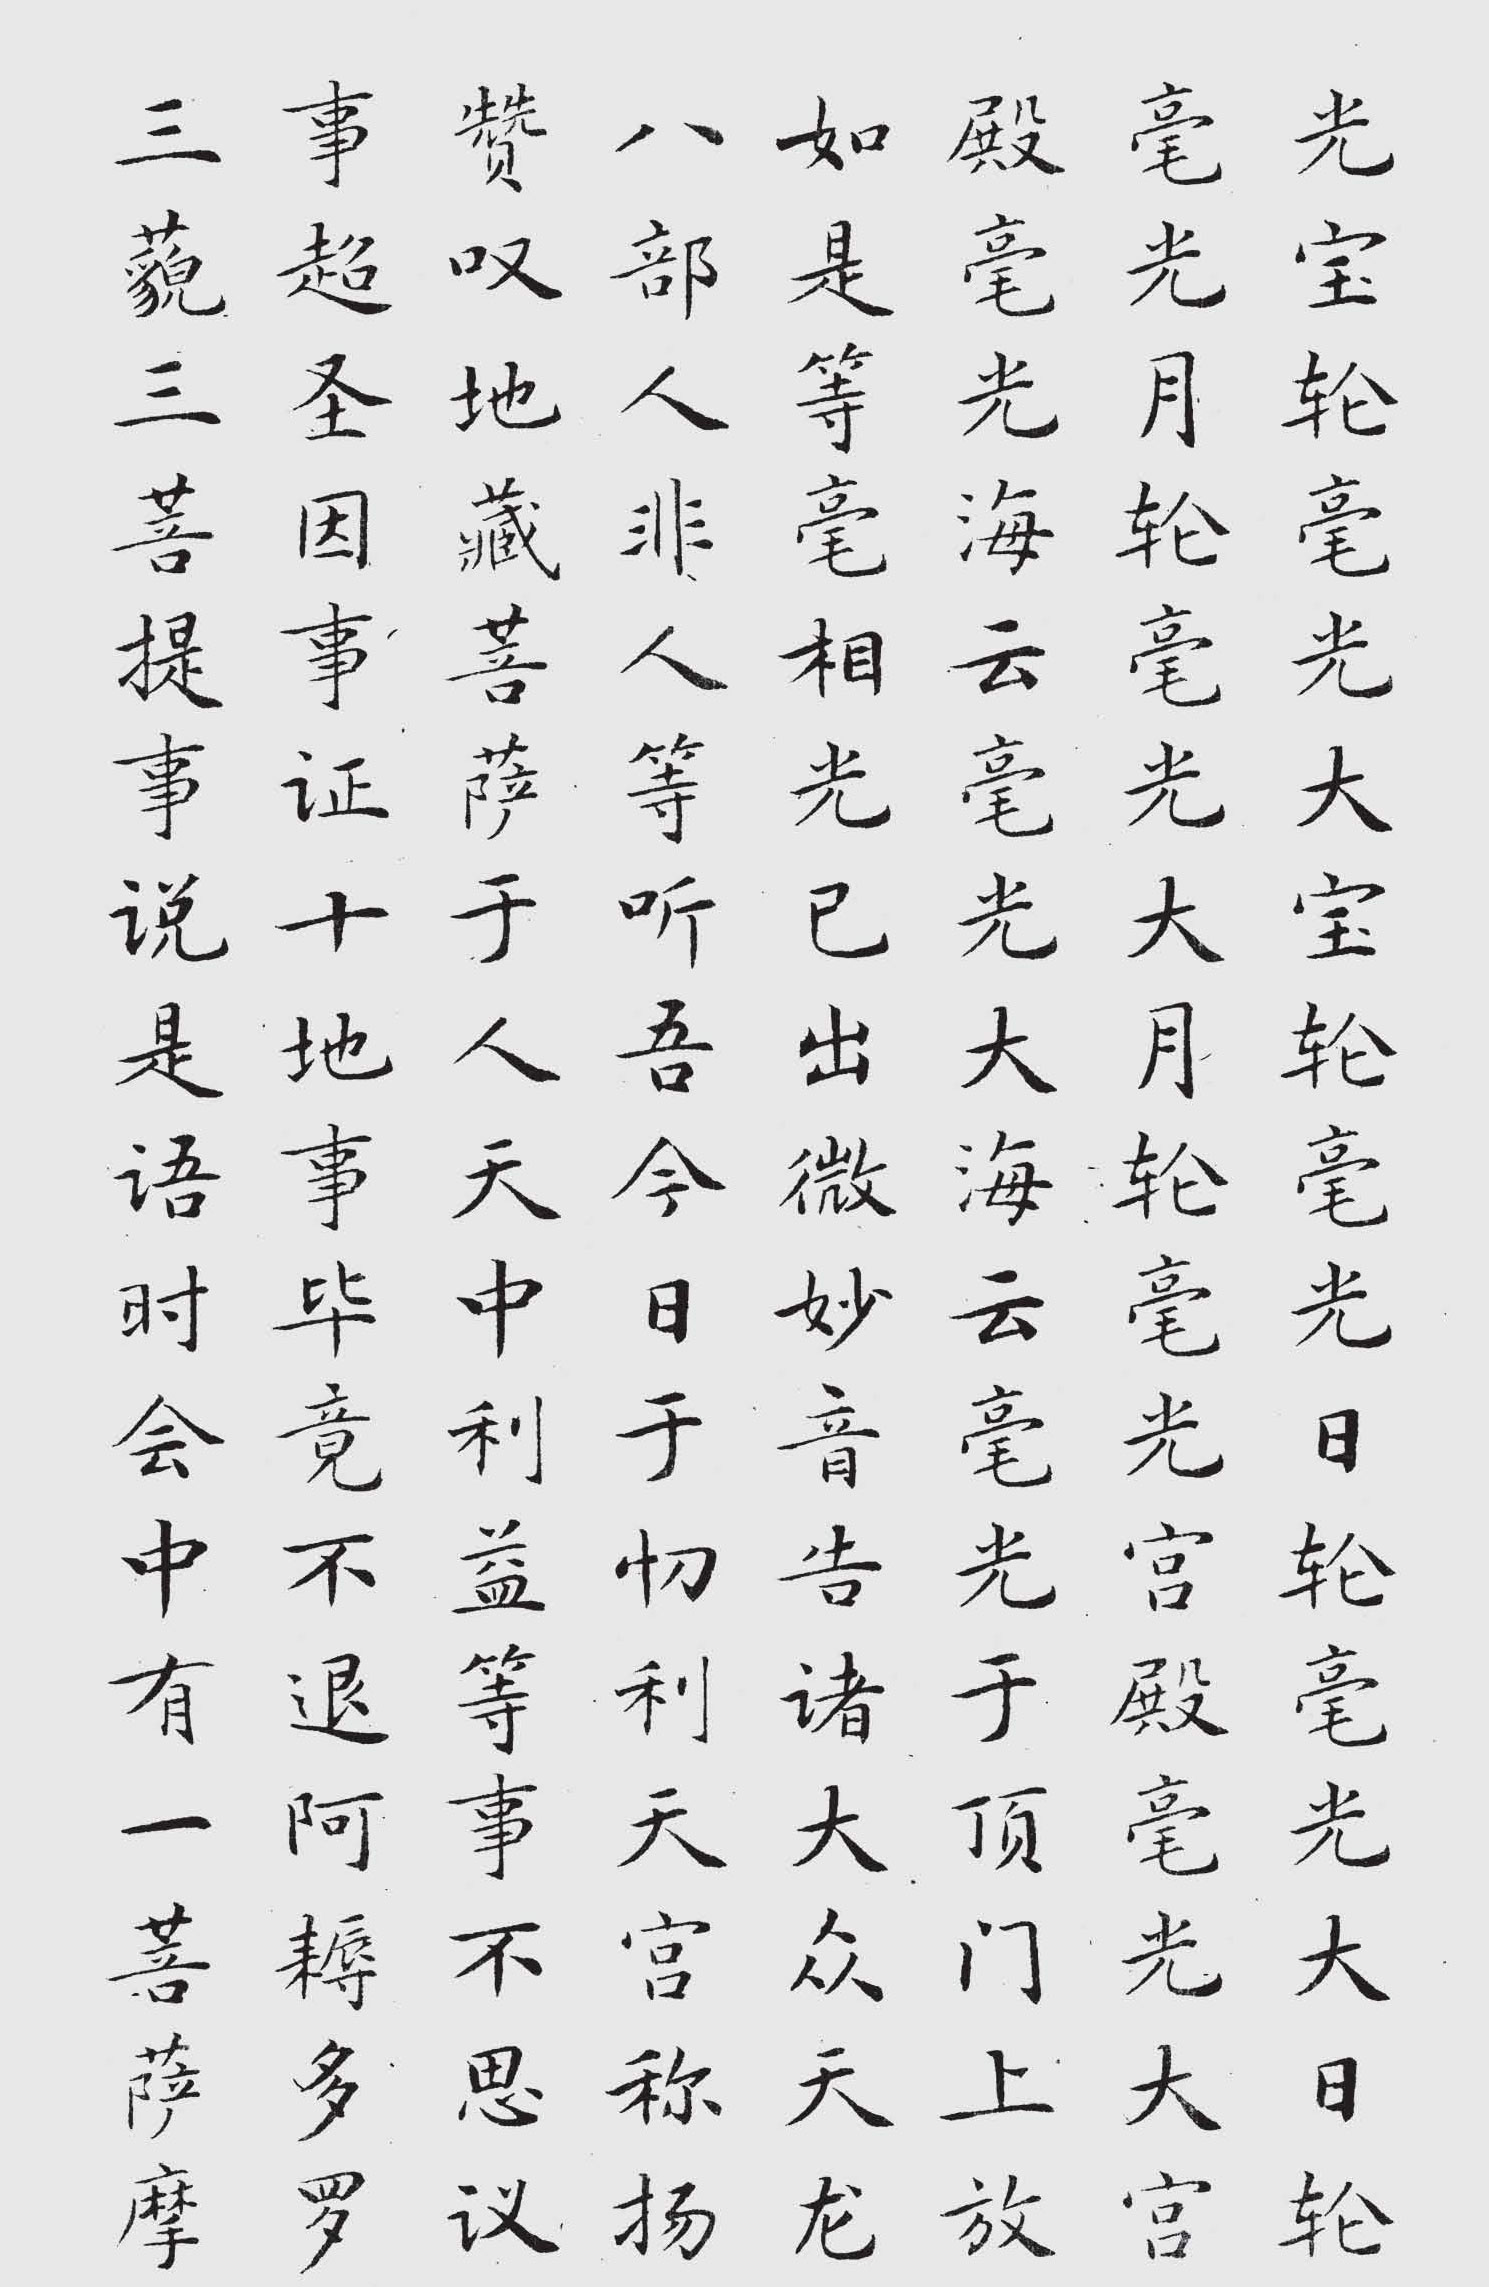 光宝轮毫光大宝轮毫光日轮毫光大日轮
毫光月轮毫光大月轮毫光宫殿毫光大宫
殿毫光海云毫光大海云毫光于顶门上放
如是等毫相光已出微妙音告诸大众天龙
八部人非人等听吾今日于忉利天宫称扬
赞叹地藏菩萨于人天中利益等事不思议
事超圣因事证十地事毕竟不退阿耨多罗
三藐三菩提事说是语时会中有一菩萨摩